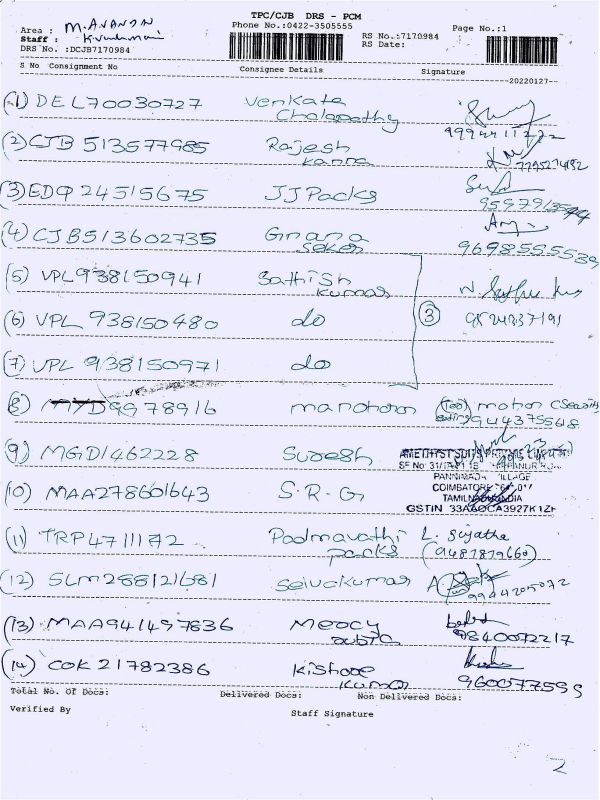 TPC/CJB DRS - PCM
Phone No.:0422-3505555
Page No.:1
Area : M.AVANAN
Staff :
DRS No. :DCJB7170984
RS No.:7170984
RS Date:
S No Consignment No Consignee Details Signature
--20220127--
(1) DEL70030727 Venkata
Chalapathy
9994411722
(2) CJB 513577985 Rajesh
kanna
7795274182
(3) EDQ 24515675 JJ Packs
(4) CJB513602735 Gnana
Sekar
9698555539
(5) VPL938150941 Sathish
kumar
(6) VPL 938150480 do (3) 9524337191
(7) VPL 938150971 do
(8) MYD9978916 manoharan mohan (Security
(9) MGD1462228 Suresh
AMETHYST SUITS PRIVATE LIMITED
PANNIMADAI VILLAGE
COIMBATORE
TAMILNADU INDIA
GSTIN 33AAOCA3927K1ZH
(10) MAA278601643 S.R.G
(11) TRP4711172 Padmavathi L. Sujatha
packs (9487879660)
(12) SLM288121681 Selvakumar
9944205072
(13) MAA941497836 Mercy
9840072217
(14) COK 21782386 Kishore
kumar 960077599
Total No. Of Docs: Delivered Docs: Non Delivered Docs:
Verified By
Staff Signature
2